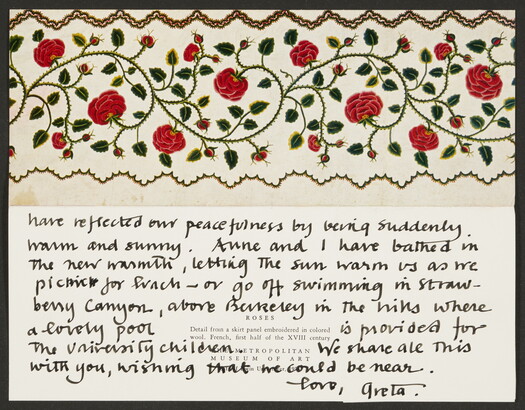 have reflected our peacefulness by being suddenly
warm and sunny. Anne and I have bathed in
the new warmth, letting the sun warm us as we
picnick for lunch – or go off swimming in straw-
berry Canyon, above Berkeley in the hills where
ROSES
a lovely pool is provided for
Detail from a skirt panel embroidered in colored
wool. French, first half of the XVIII century
the University children. We share all this
METROPOLITAN
MUSEUM OF ART
with you, wishing that we could be near.
Love, Greta.